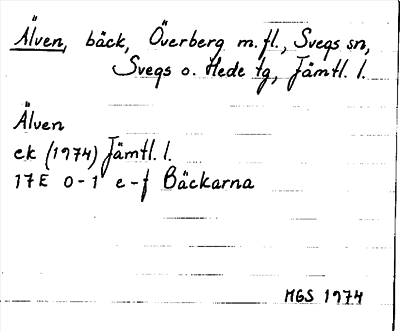 Älven, bäck, Överberg m.fl., Svegs sn,
Svegs o. Hede tg, Jämtl. l.
Älven
ek (1974) Jämtl. l.
17E 0-1 e-f Bäckarna
MGS 1974